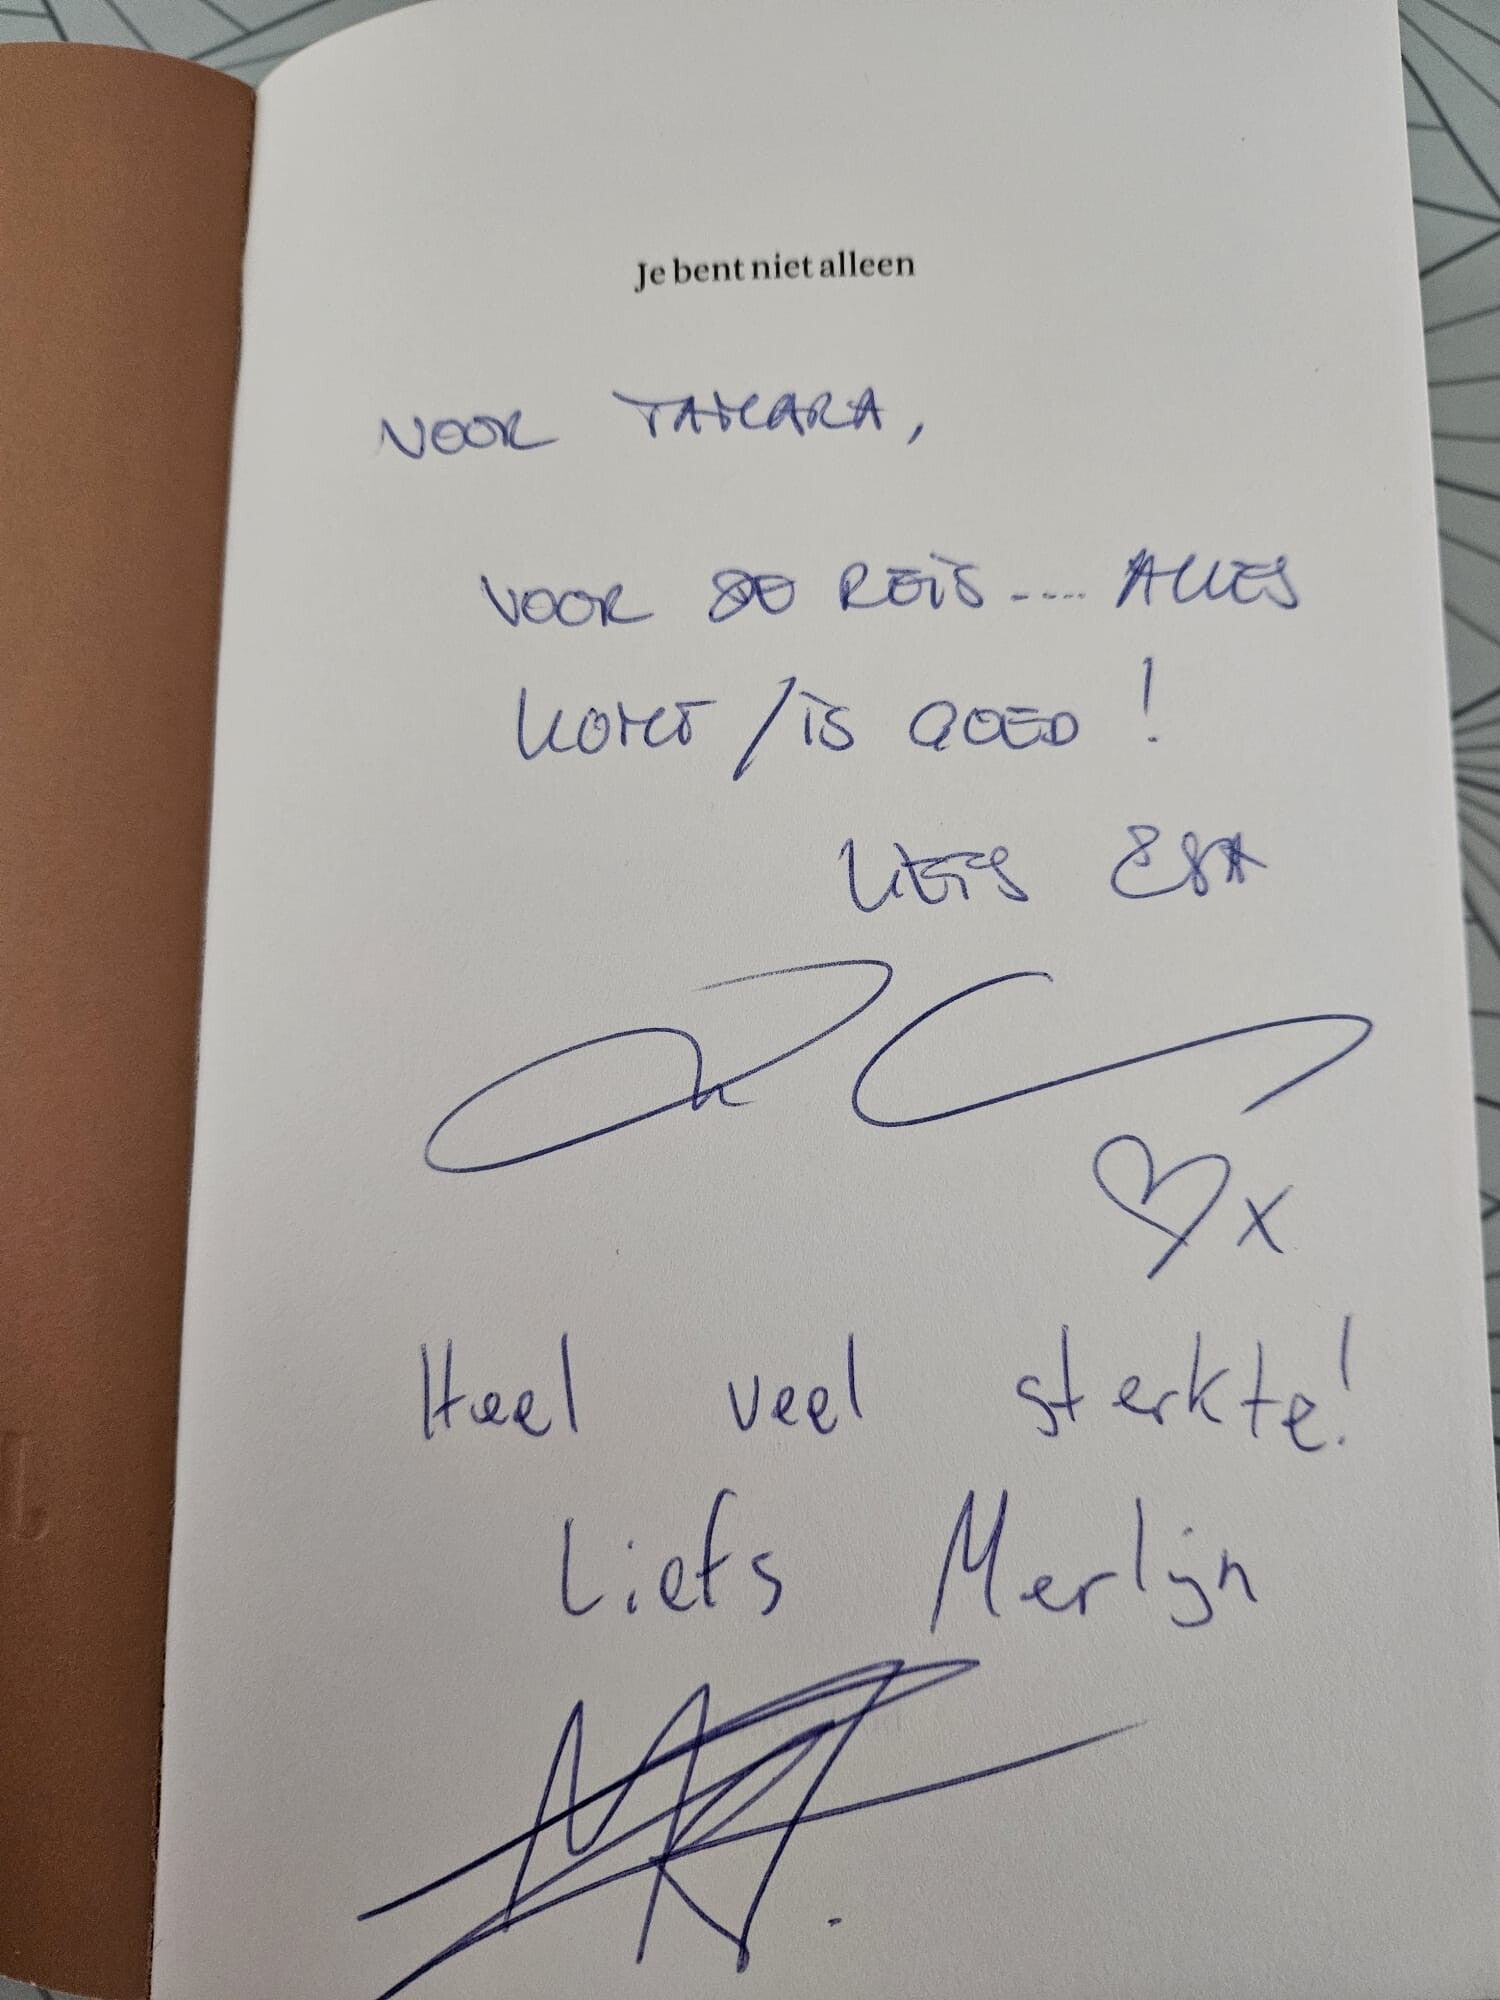 Je bent niet alleen
VOOR TAMARA,
VOOR JE REIS.... ALLES
KOMT / IS GOED!
LIEFS ESA
x
Heel veel sterkte!
Liefs Merlijn